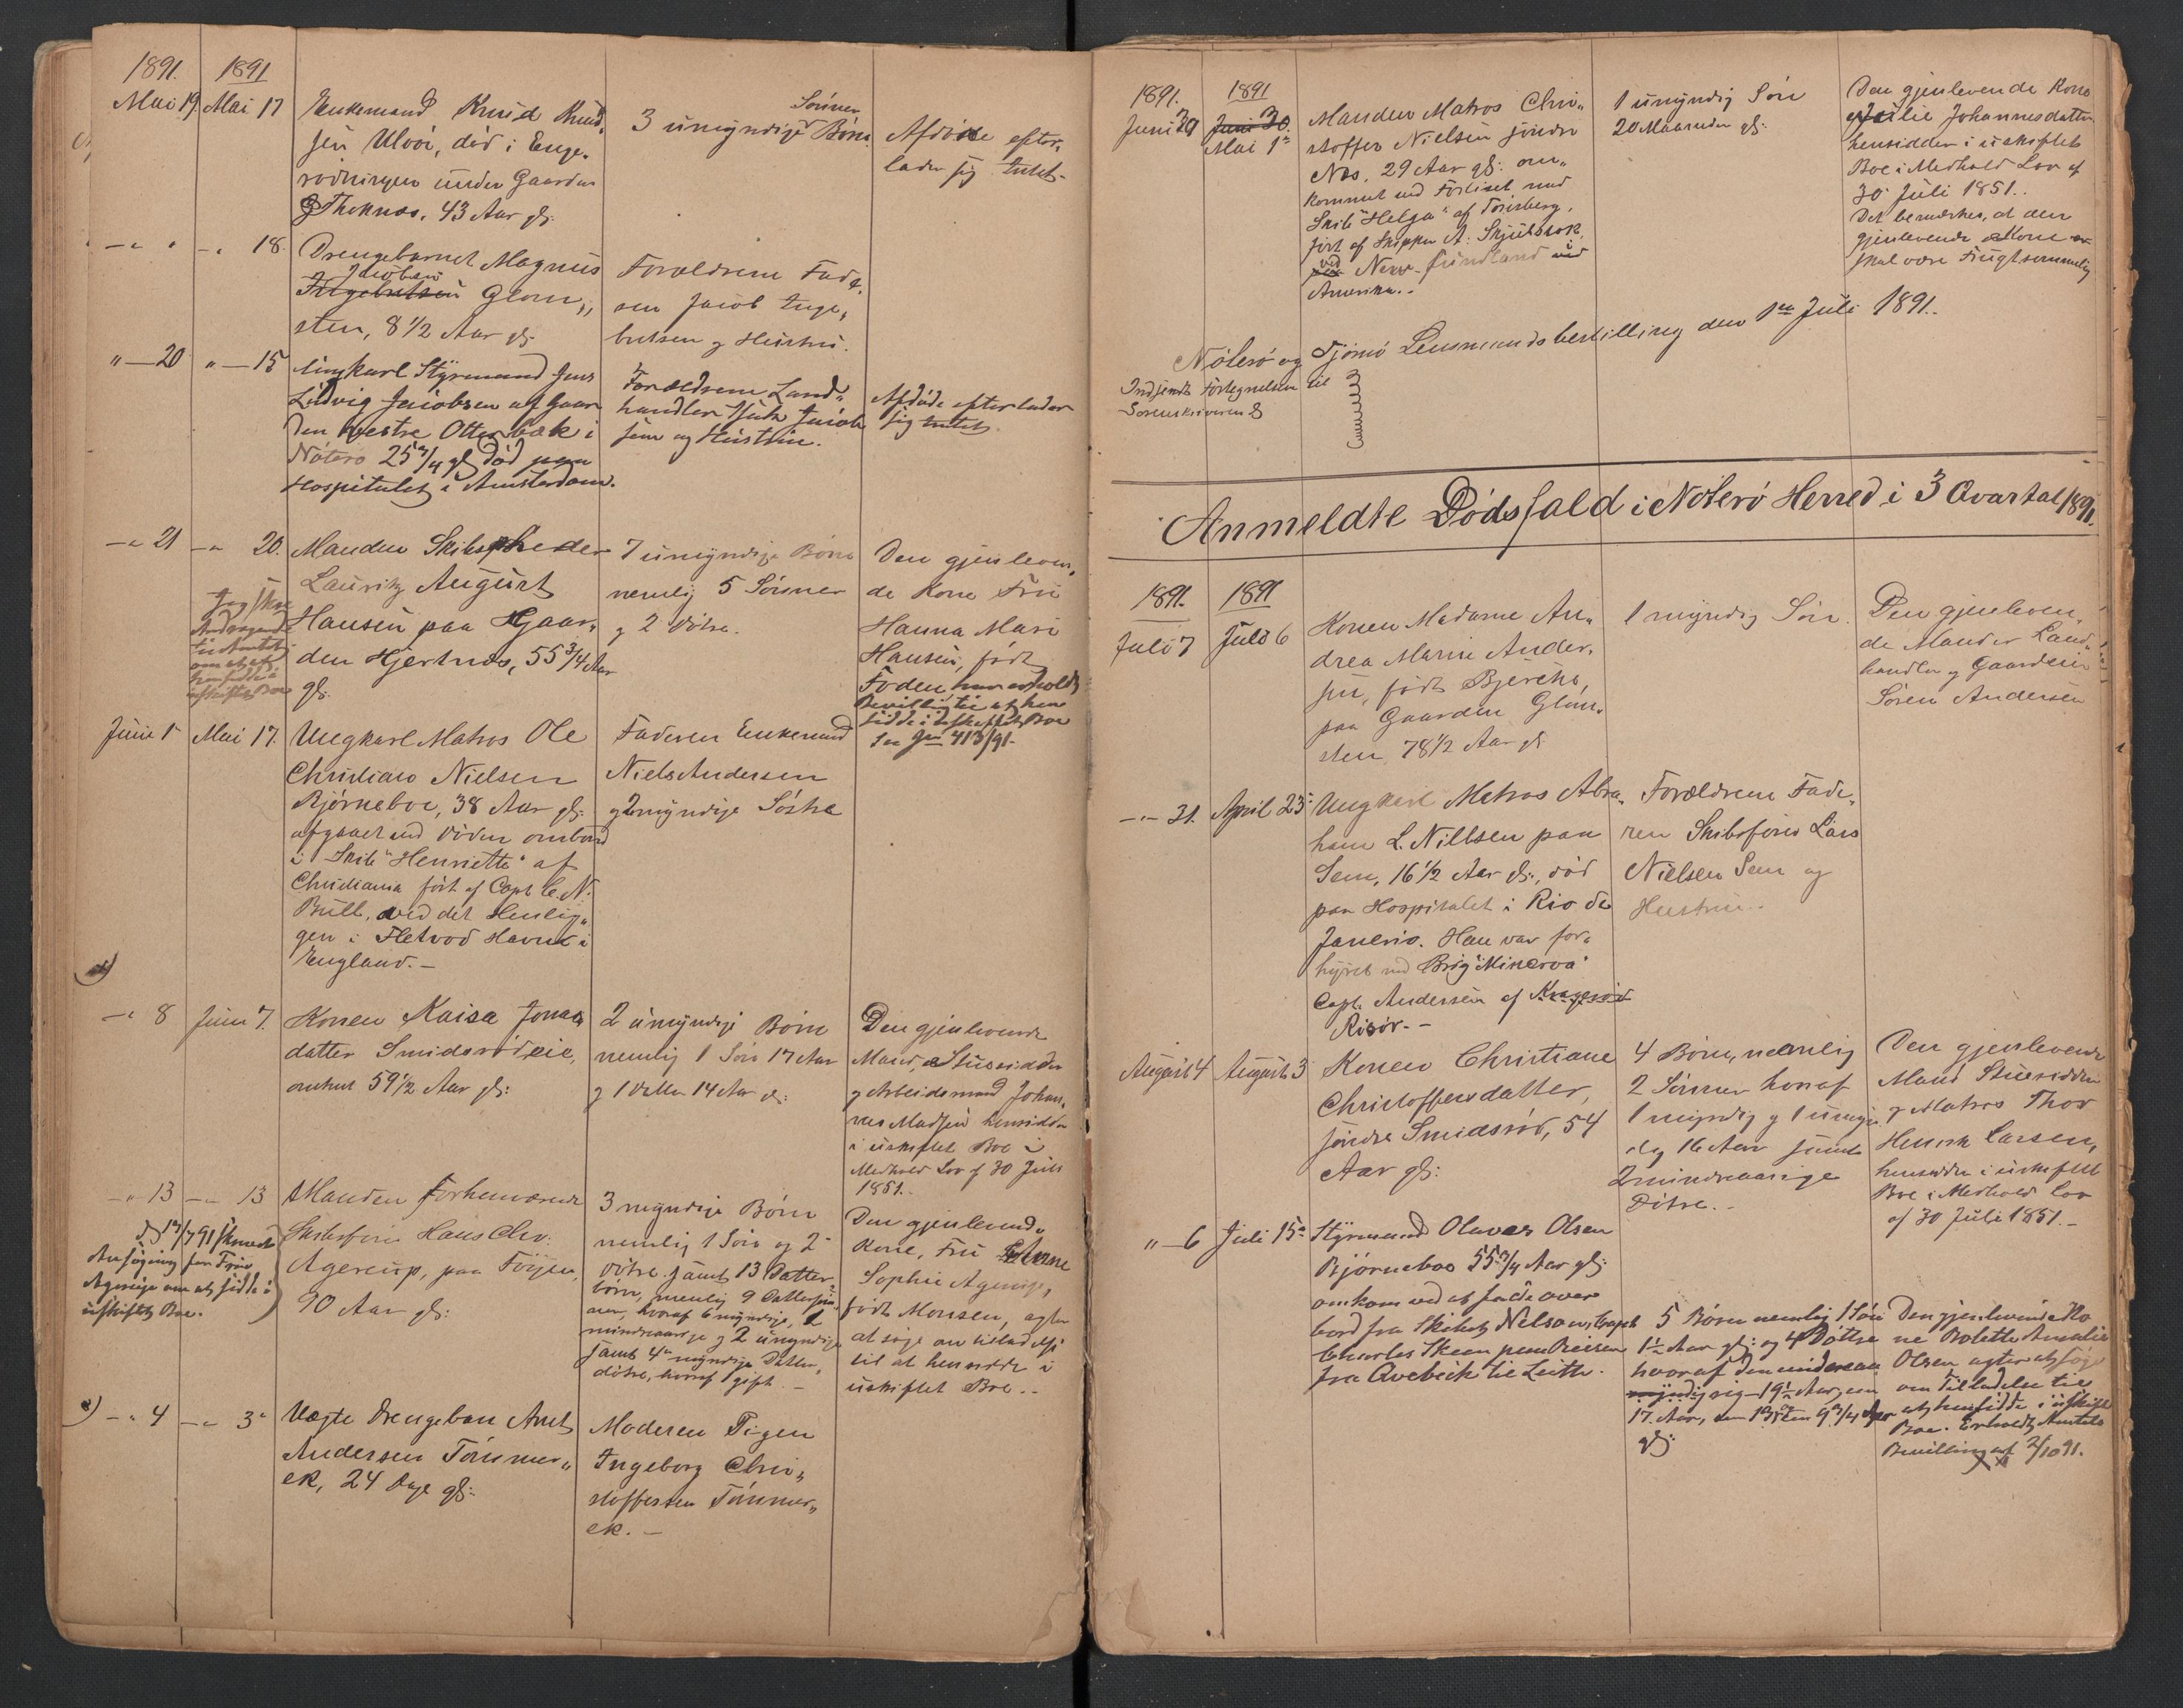 1891. 1891
Mai 19 Mai 17 Enkemand Knud Knud-
sen Uloö, död i Enge-
rödningen under Gaarden
Theknæs, 43 Aar gl:
3 umyndige Sönner Börn
Afdöde efter-
lader sig Intet-
18. Drengebarnet Magnus
Jacobsen
Ingebretsen Glom-
sten, 8 1/2 Aar gl:
Forældrene Fade-
ren Jacob Inge-
bretsen & Hustru.
" — 20 " — 15 Ungkarl Styrmand Jens
Ludvig Jacobsen af Gaar
den vestre Otterbæk i
Nøterø 25 3/4 gl: död paa
Hospitalet i Amsterdam.
Forældrene Land-
handler Jacob-
sen og Hustru.
Afdöde efterlader
sig Intet
— " 21 — " 20. Manden Skibsrheder
Lauritz August
Hansen paa Gaar-
den Hjertnæs, 55 3/4 Aar
gl:
7 umyndige Börn
nemlig 5 Sönner
& 2 Dötre.
Den gjenleven-
de Kone Fru
Hanna Mari
Hansen, födt
Foden, har erholdt
Bevilling til at hen
sidde i uskiftet Boe
se Jnr 413/91-
uskiftet Boe
Juni 1 Mai 17. Ungkarl Matros Ole
Christian Nielsen
Björneboe, 38 Aar gl:
afgaaet ved Döden ombord
i Skib "Henriette" af
Christiania fört af Capt C. N.
Bull, ved det Henlig-
gen i Fletvod Havn i
England. —
Faderen Enkemand
Niels Andersen
og 2 myndige Söstre
— " 8 Juni 7. Konen Kaisa Jonas
datter Smidsrödeie,
omtrent 59 1/2 Aar gl:
2 umyndige Börn
nemlig 1 Sön 17 Aar
& 1 Datter 14 Aar gl:
Den gjenlevende
Mand, Huusidder
& Arbeidsmand Johan-
nes Madsen hensidder
i uskiftet Boe i
Medhold Lov af 30 Juli
1851. —
— " 13 — " 13 Manden Forhenværende
Skibsförer Hans Chr.
Agerup, paa Föyen,
90 Aar gl:
Ansögning fra Fru
Agerup om at sidde i
uskiftet Boe.
3 myndige Börn
nemlig 1 Sön og 2
Dötre samt 13 Datter-
börn, nemlig 9 Dattersön-
ner, hvoraf 6 myndige, 1
mindreaarige & 2 umyndige
samt 4 myndige Datter-
dötre, hvoraf 1 gift. —
Den gjenlevende
Kone, Fru Anne
Sophie Agerup,
födt Monsen, agter
at söge om tilladelse
til at hensidde i
uskiftet Boe. —
— " 4 — " 3 Uægte Drengebarn Arnt
Andersen Tönmer-
ek, 24 Dage gl:
Moderen Pigen
Ingeborg Chri-
stoffersen Tönmer-
ek. —
1891. 1891
Juni 30 Juni 30.
Mai 1
Manden Matros Chri-
stoffer Nielsen söndre
Næs, 29 Aar gl: om-
kommet ved Forliset med
Skib "Helga" af Tönsberg,
fört af Skipper A. Skjelbak
ved New-fundland ved
Amerika. -
1 umyndig Sön
20 Maaneder gl:
Den gjenlevende Kone
Johannesdatter
hensidder i uskiftet
Boe i Medhold Lov af
30 Juli 1851. -
Det bemærkes, at den
gjenlevende Kone
skal være Frugtsommelig
Nöterö og Tjömö Lensmandsbestilling den 1 Juli 1891. -
Indsendt Fortegnelsen til
Sorenskriveren
Anmeldte Dödsfald i Nöterö Herred i 3 Qvartal 1891.
1891. 1891
Juli 7 Juli 6 Konen Madame An-
drea Marie Ander-
sen, födt Bjerche,
paa Gaarden Glom-
sten, 78 1/2 Aar gl:
1 myndig Sön.
Den gjenleven-
de Mand er Land-
handler & Gaardeier
Sören Andersen
— " — 31. April 23 Ungkarl Matros Abra-
ham L. Nillsen paa
Sem, 16 1/2 Aar gl:, död
paa Hospitalet i Rio de
Janerio. Han var for-
hyret med Brig "Minerva"
Capt. Andersen af Kragerö
Risör. —
Forældrene Fade-
ren Skibsförer Lars
Nielsen Sem og
Hustru. -
August 4 August 3 Konen Christiane
Christoffersdatter,
söndre Smidsröd, 54
Aar gl:
4 Börn, nemlig
2 Sönner hvoraf
1 myndig & 1 umyn-
dig 16 Aar samt
2 mindreaarige
Dötre. -
Den gjenlevende
Mand Huusidder
& Matros Thor
Henrik Larsen,
hensidder i uskiftet
Boe i Medhold Lov
af 30 Juli 1851. —
" — 6 Juli 15 Styrmand Olaves Olsen
Björneboe 55 3/4 Aar gl:
omkom ved at falde over
bord fra Skibet Nelson, Capt
Charles Skeen paa Reisen
fra Qvebeck til Leith.
5 Börn nemlig 1 Sön
Aar gl: og 4 Döttre
hvoraf den mindreaa
rig — 19 Aar, en
17 Aar, 9 3/4 Aar
gl:
Den gjenlevende Ko
ne Bolette Amalie
Olsen agter at söge
om Tilladelse til
at hensidde i uskiftet
Boe. Erholdt Amtets
Bevilling af 2/10 91.